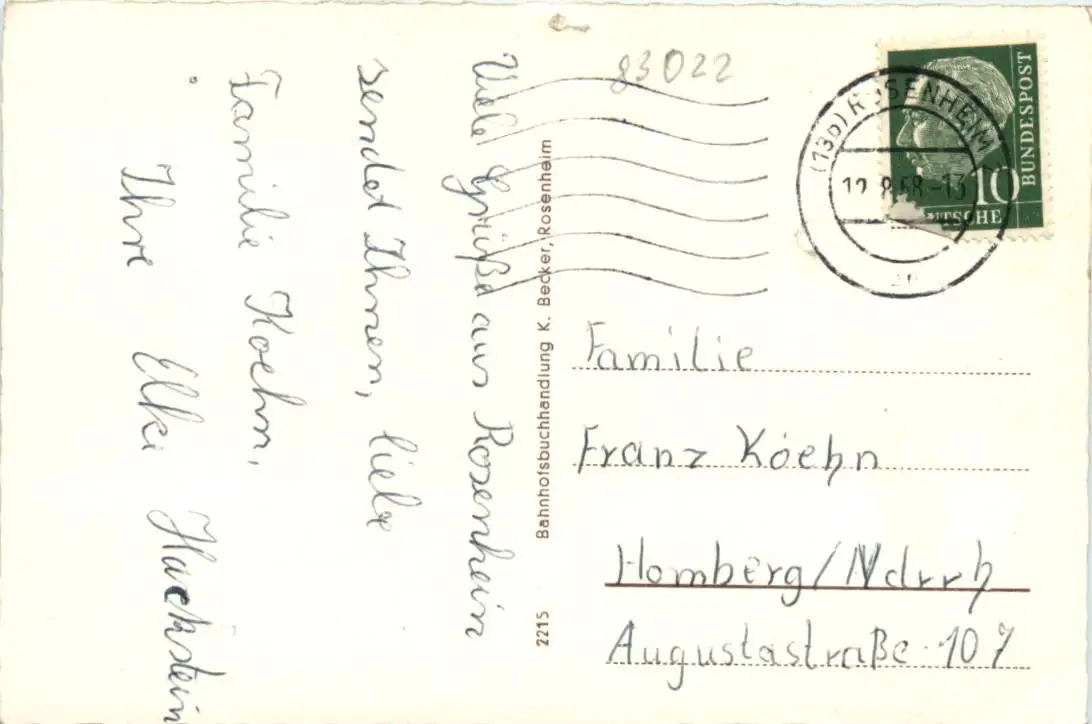 Viele Grüße aus Rosenheim
sendet Ihnen, liebe
Familie Koehn,
Ihre Elke Hackstein
83022
2215 Bahnhofsbuchhandlung K. Becker, Rosenheim
(13b) ROSENHEIM
12.8.58-13
10
BUNDESPOST
DEUTSCHE
Familie
Franz Koehn
Homberg/Ndrrh
Augustastraße 107